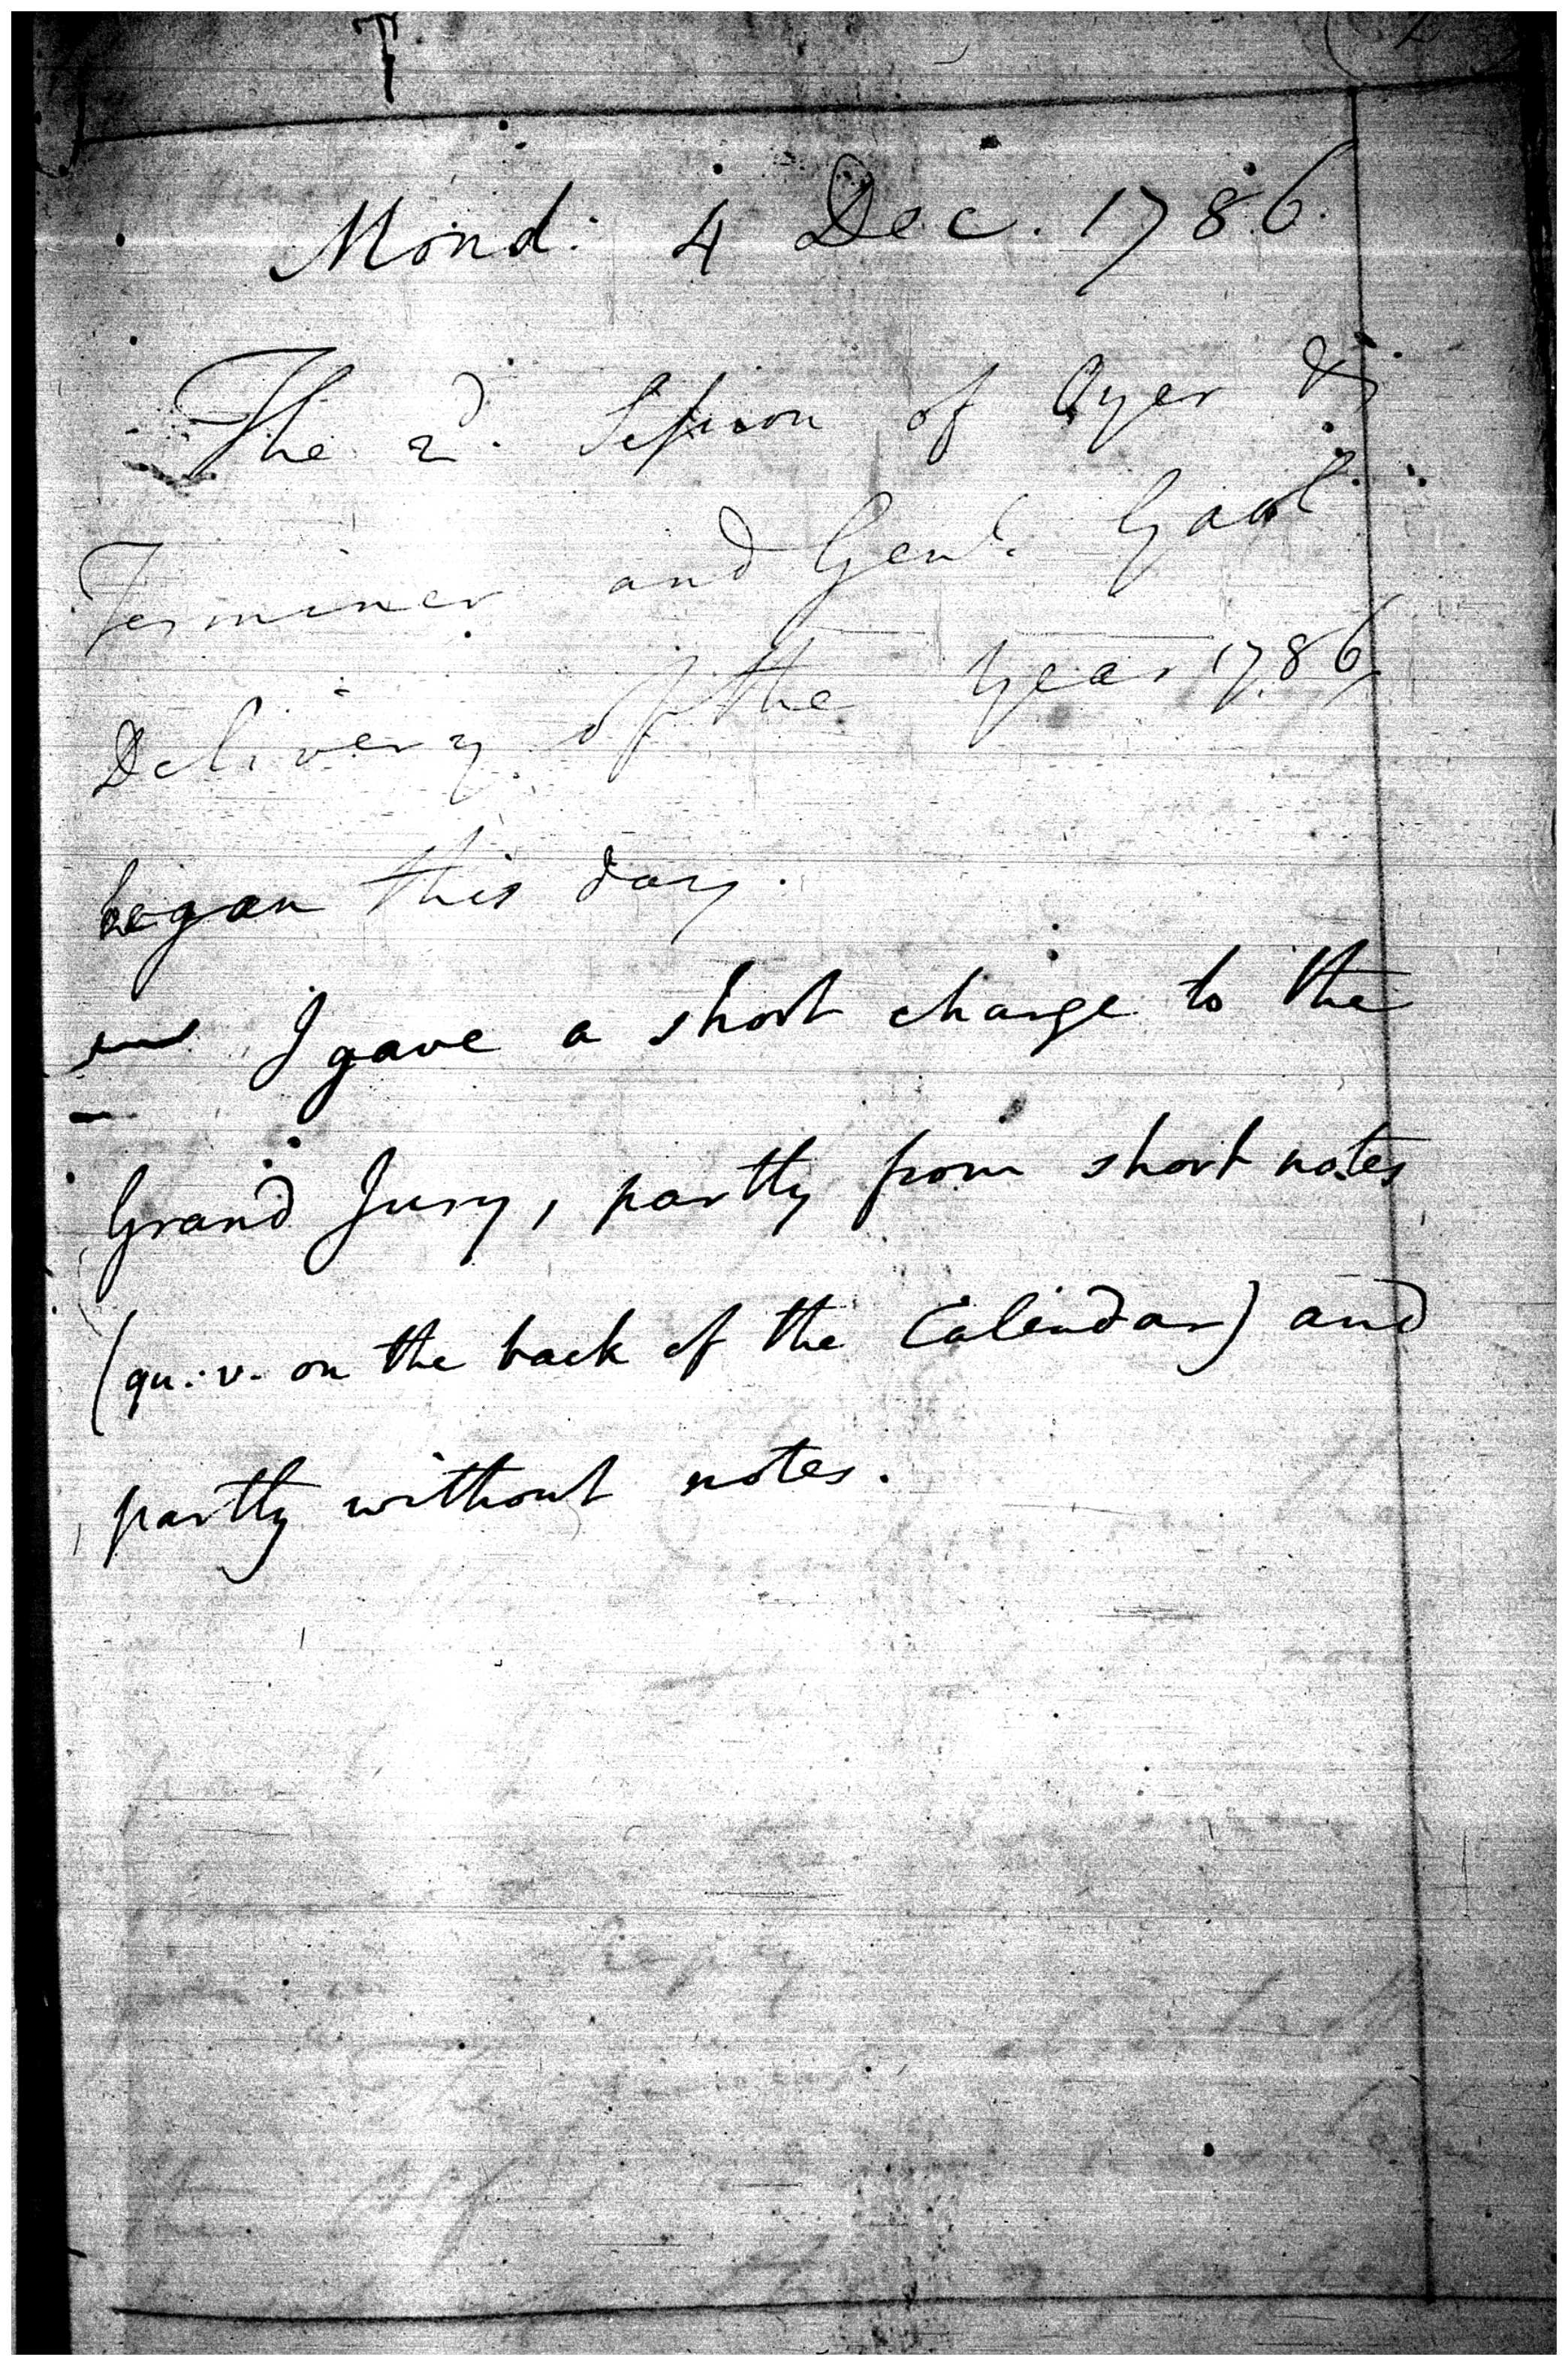 Mond: 4 Dec. 1786.
The 2d. Session of Oyer &
Terminer and Genl. Gaol
Delivery of the year 1786
began this day.
I gave a short charge to the
Grand Jury, partly from short notes
(qu: v. on the back of the Calendar) and
partly without notes.